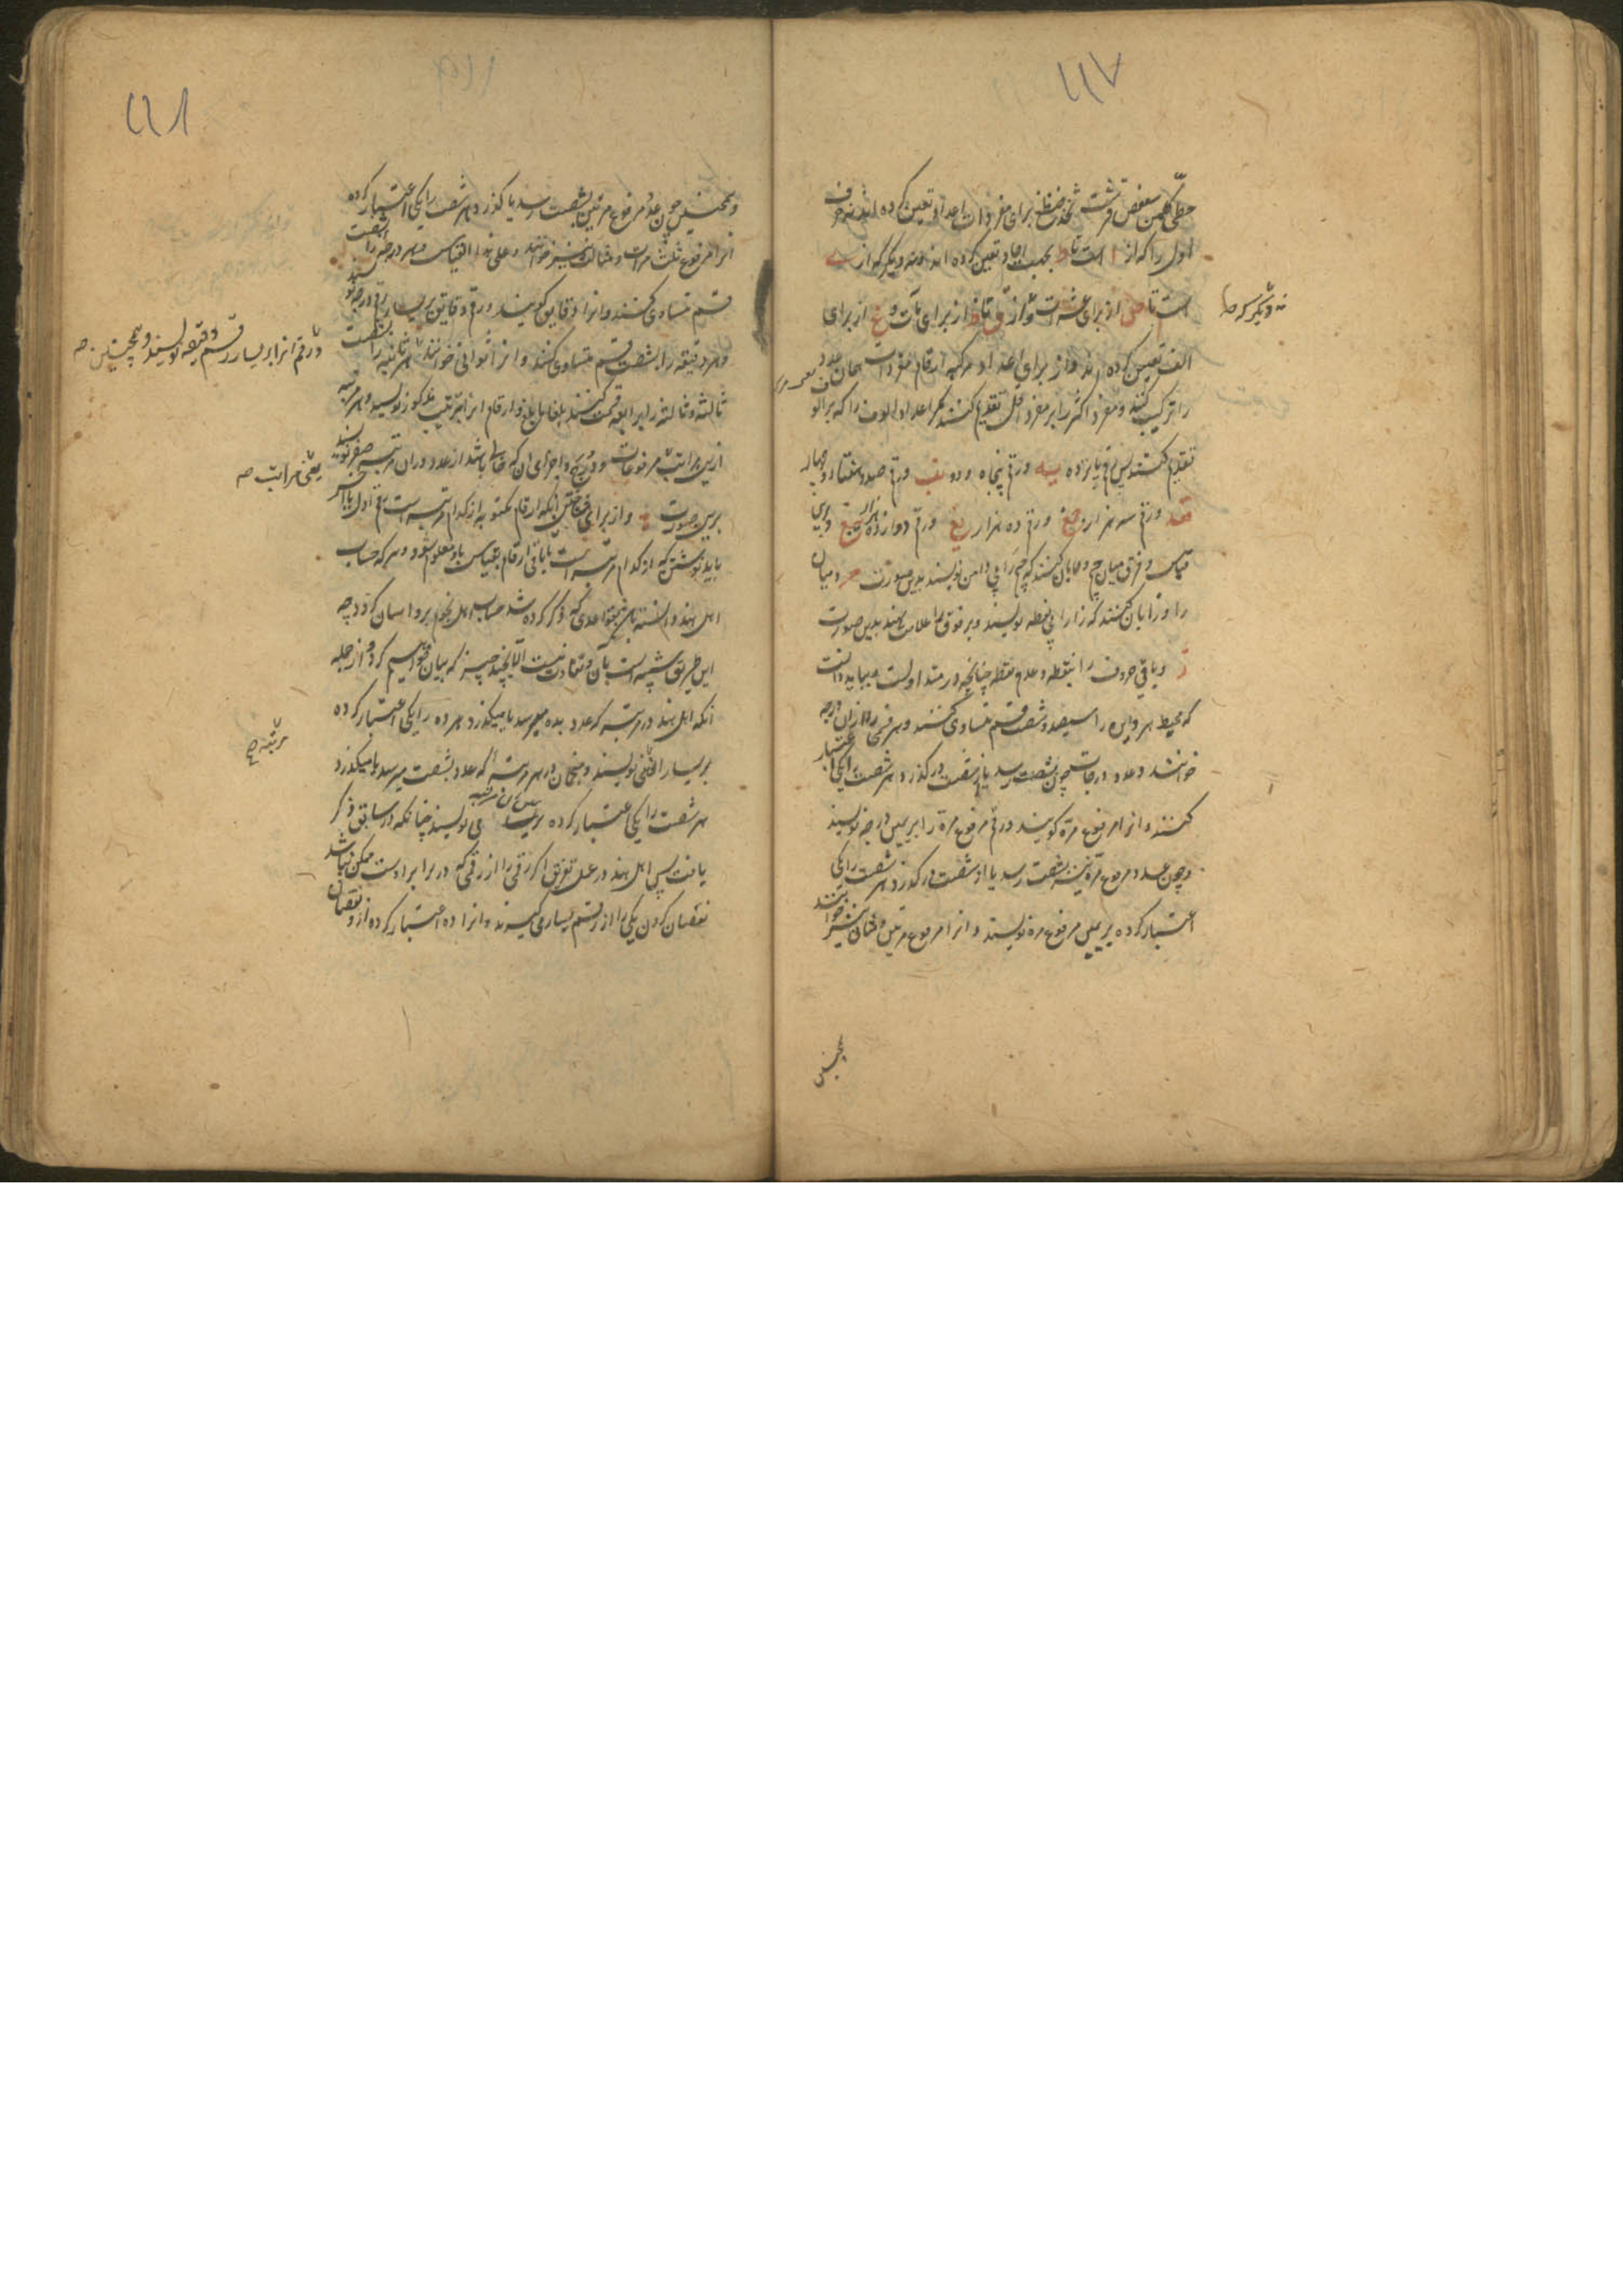 ۱۱۷
حطی کلمن سعفص قرشت ثخذ ضظغ برای مفردات اعداد تعیین کرده اند نه حرف
اول را که از ا است تا ط بجهت احاد تعیین کرده اند و نه دیگر که از ی
است تا ص از برای عشرات و از ق تا ظ از برای مآت و غ از برای
نه دیگر که
الف تعیین کرده اند و از برای اعداد مرکبه ارقام مفردات همان عدد
را ترکیب کنند و مفرد اکثر را بر مفرد اقل تقدیم کنند مگر اعداد الوف را که بر الوف
تقدیم کنند پس رقم پانزده یه و رقم پنجاه و دو نب و رقم صد و هفتاد و چهار
قعد و رقم سه هزار جغ و رقم ده هزار یغ و رقم دوازده هزار یبغ و برین
قیاس و فرق میان جیم و حا بآن کنند که جیم را بی دامن نویسند بدین صورت حـ و میان
را و زا بآن کنند که زا را بی نقطه نویسند و بر فوق را علامت نهند بدین صورت
ز و باقی حروف را بنقطه و عدم نقطه چنانچه در متداولست و بباید دانست
که محیط هر دایره را سیصد و شصت قسم متساوی کنند و هر قسمی را از آن درجه
خوانند و عدد درجات چون بشصت رسد یا از شصت درگذرد هر شصت را یکی اعتبار
کنند و انرا مرفوع مرة کویند و رقم مرفوع مرة را بر یمین درجه نویسند
و چون عدد مرفوع مرة نیز بشصت رسد یا از شصت درگذرد هر شصت را یکی
اعتبار کرده بر یمین مرفوع مره نویسند و انرا مرفوع مرتین و مثانی نیز خوانند
۱۱۸
و همچنین چون عدد مرفوع مرتین بشصت رسد یا گذرد هر شصت را یکی اعتبار کرده
انرا مرفوع ثلث مرات و مثالث نیز خوانند و علی هذا القیاس و هر درجه را بشصت
قسم متساوی کنند و انرا دقایق کویند و رقم دقایق بر یسار رقم درجه نویسند
و هر دقیقه را بشصت قسم متساوی کنند و انرا ثوانی خوانند و هر ثانیه را بشصت
و رقم انرا بر یسار رقم دقیقه نویسند و همچنین صح
ثالثه و ثالثه را برابعه قسمت کنند بلغا ما بلغ و ارقام انرا بترتیب مذکور نویسند و هر مرتبه
ازین مراتب مرفوعات و درج و اجزای ان که خالی باشد از عدد در ان مرتبه صفر نویسند
یعنی مراتب صح
برین صورت و از برای انکه ارقام مکتوبه از کدام مرتبه است رقم اول یا اخیر
باید نوشتن که از کدام مرتبه است تا باقی ارقام بقیاس باو معلوم شود و هر که حساب
اهل هند دانسته باشد بقواعدی که ذکر کرده شد حساب اهل نجوم برو اسان گردد چه
این طریق شبیه است بآن و تفاوت نیست الا بچند چیز که بیان خواهیم کرد و از جمله
انکه اهل هند در مرتبه که عدد بده میرسد یا میگذرد هر ده را یکی اعتبار کرده
مرتبه صح
بر یسار نویسند و منجمان در هر مرتبه که عدد بشصت میرسد یا میگذرد
هر شصت را یکی اعتبار کرده می نویسند چنانکه در سابق ذکر
یافت پس اهل هند در عمل تفریق اگر رقمی را از رقمی که در برابر اوست ممکن نباشد
نقصان کردن یکی را از رقم یسار می گیرند و انرا ده اعتبار کرده از و نقصان